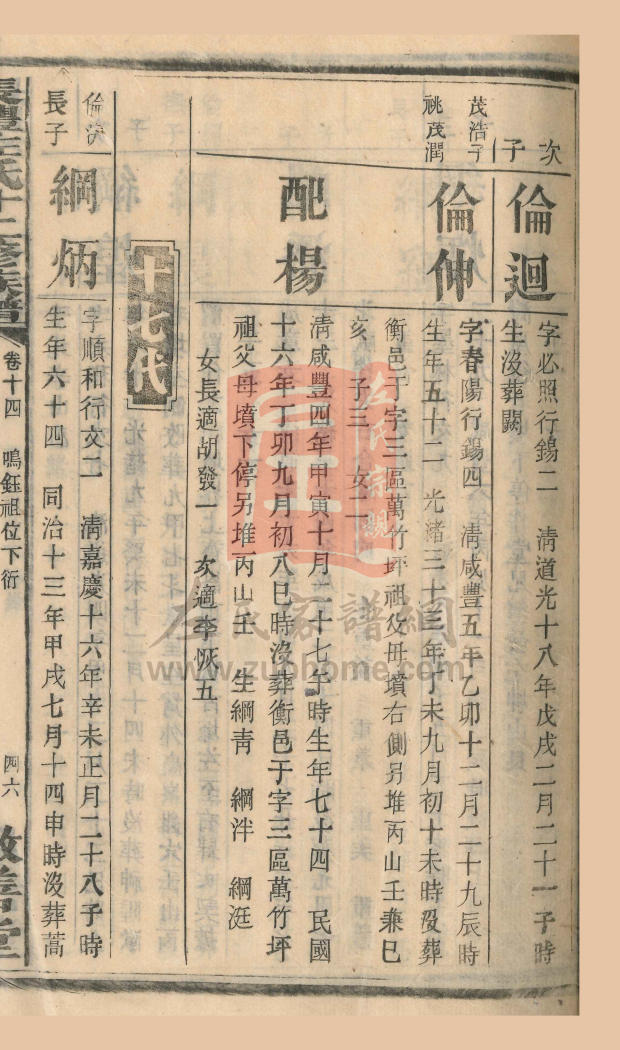 次子
倫迴
字必照行錫二　清道光十八年戊戌二月二十一子時
生沒葬闕
茂浩子
祧茂潤
倫伸
字春陽行錫四　清咸豐五年乙卯十二月二十九辰時
生年五十二　光緒三十三年丁未九月初十未時沒葬
衡邑于字三區萬竹坪祖父母墳右側另堆丙山壬兼巳
亥　子三　女二
配楊
清咸豐四年甲寅十月二十七午時生年七十四　民國
十六年丁卯九月初八巳時沒葬衡邑于字三區萬竹坪
祖父母墳下停另堆丙山壬　生綱青　綱泮　綱涏
女長適胡發一　次適李恢五
十七代
倫浹
長子
綱炳
字順和行文二　清嘉慶十六年辛未正月二十八子時
生年六十四　同治十三年甲戌七月十四申時沒葬蒿
長豐左氏十二修族譜
卷十四　鳴鈺祖位下衍
四六
敦善堂
左氏宗親
左氏家譜網
www.zuohome.com